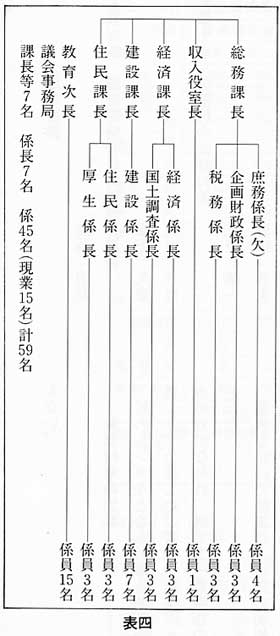 総務課長
収入役室長
経済課長
建設課長
住民課長
教育次長
議会事務局
課長等7名 係長7名 係45名(現業15名)計59名
庶務係長(欠)
企画財政係長
税務係長
経済係長
国土調査係長
建設係長
住民係長
厚生係長
係員4名
係員3名
係員3名
係員1名
係員3名
係員3名
係員7名
係員3名
係員3名
係員15名
表四